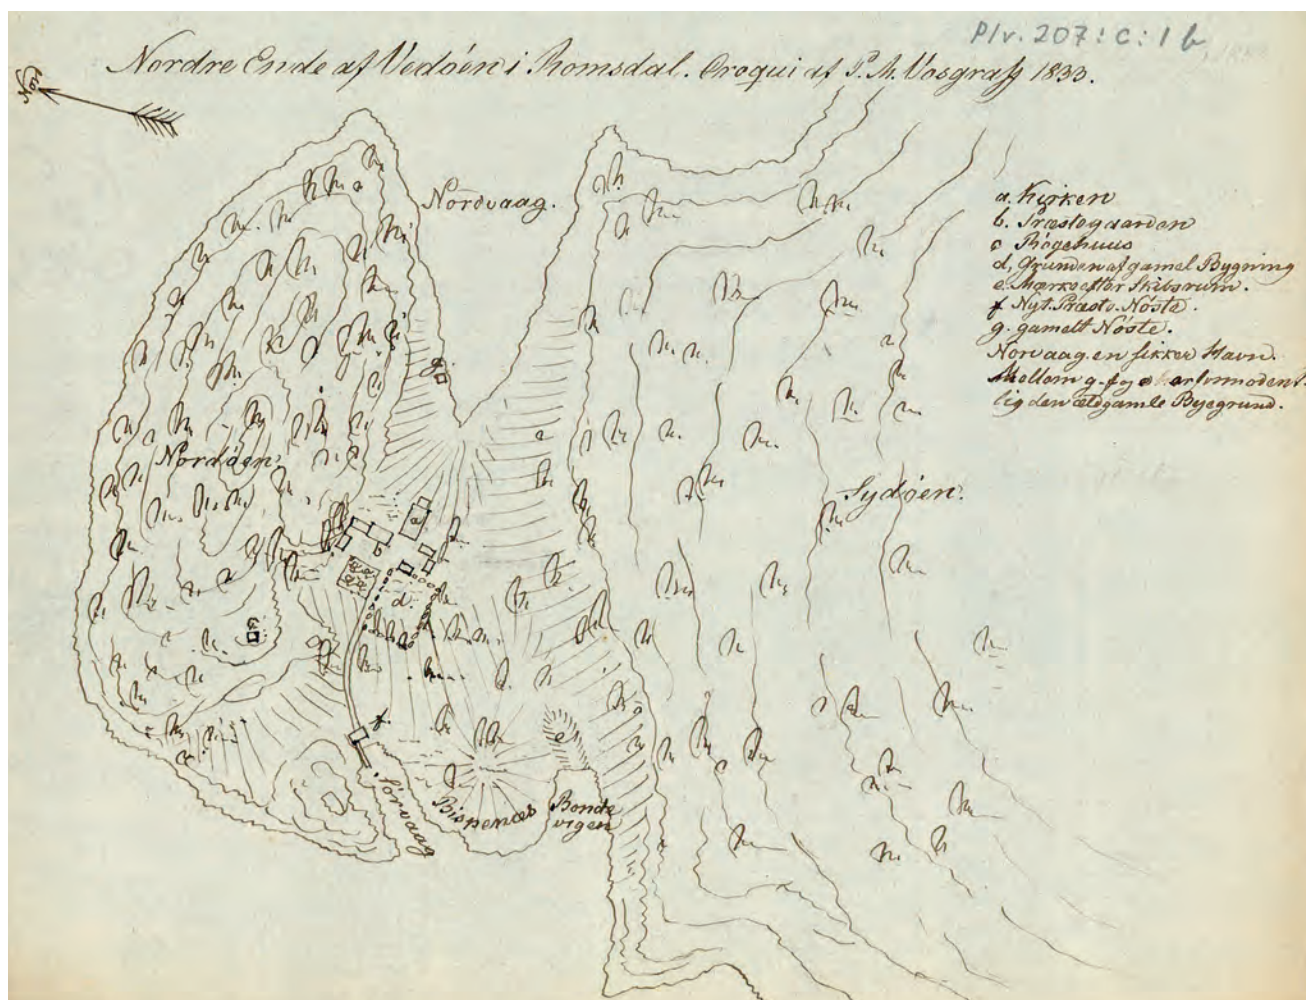 Plv. 207: C: 1 b
Nordre Ende af Vedöen i Romsdal. Croqui af P. M. Vosgraff 1833.
Nor
Nordvaag.
a. Kirken
b. Præstegaarden
c Rögehuus
d, Grunden af gamel Bygning
e. Mærke efter Skibsrum.
f Nyt. Præste. Nöste.
g. gamelt Nöste.
Norvaag. en sikker Havn.
Mellom g. f og e har formodent.
lig den ældgamle Byegrund.
g
Nordöen.
Sydöen.
a
b
e
d.
c
f.
e
Sörvaag
Bispenæs
Bonde
vigen